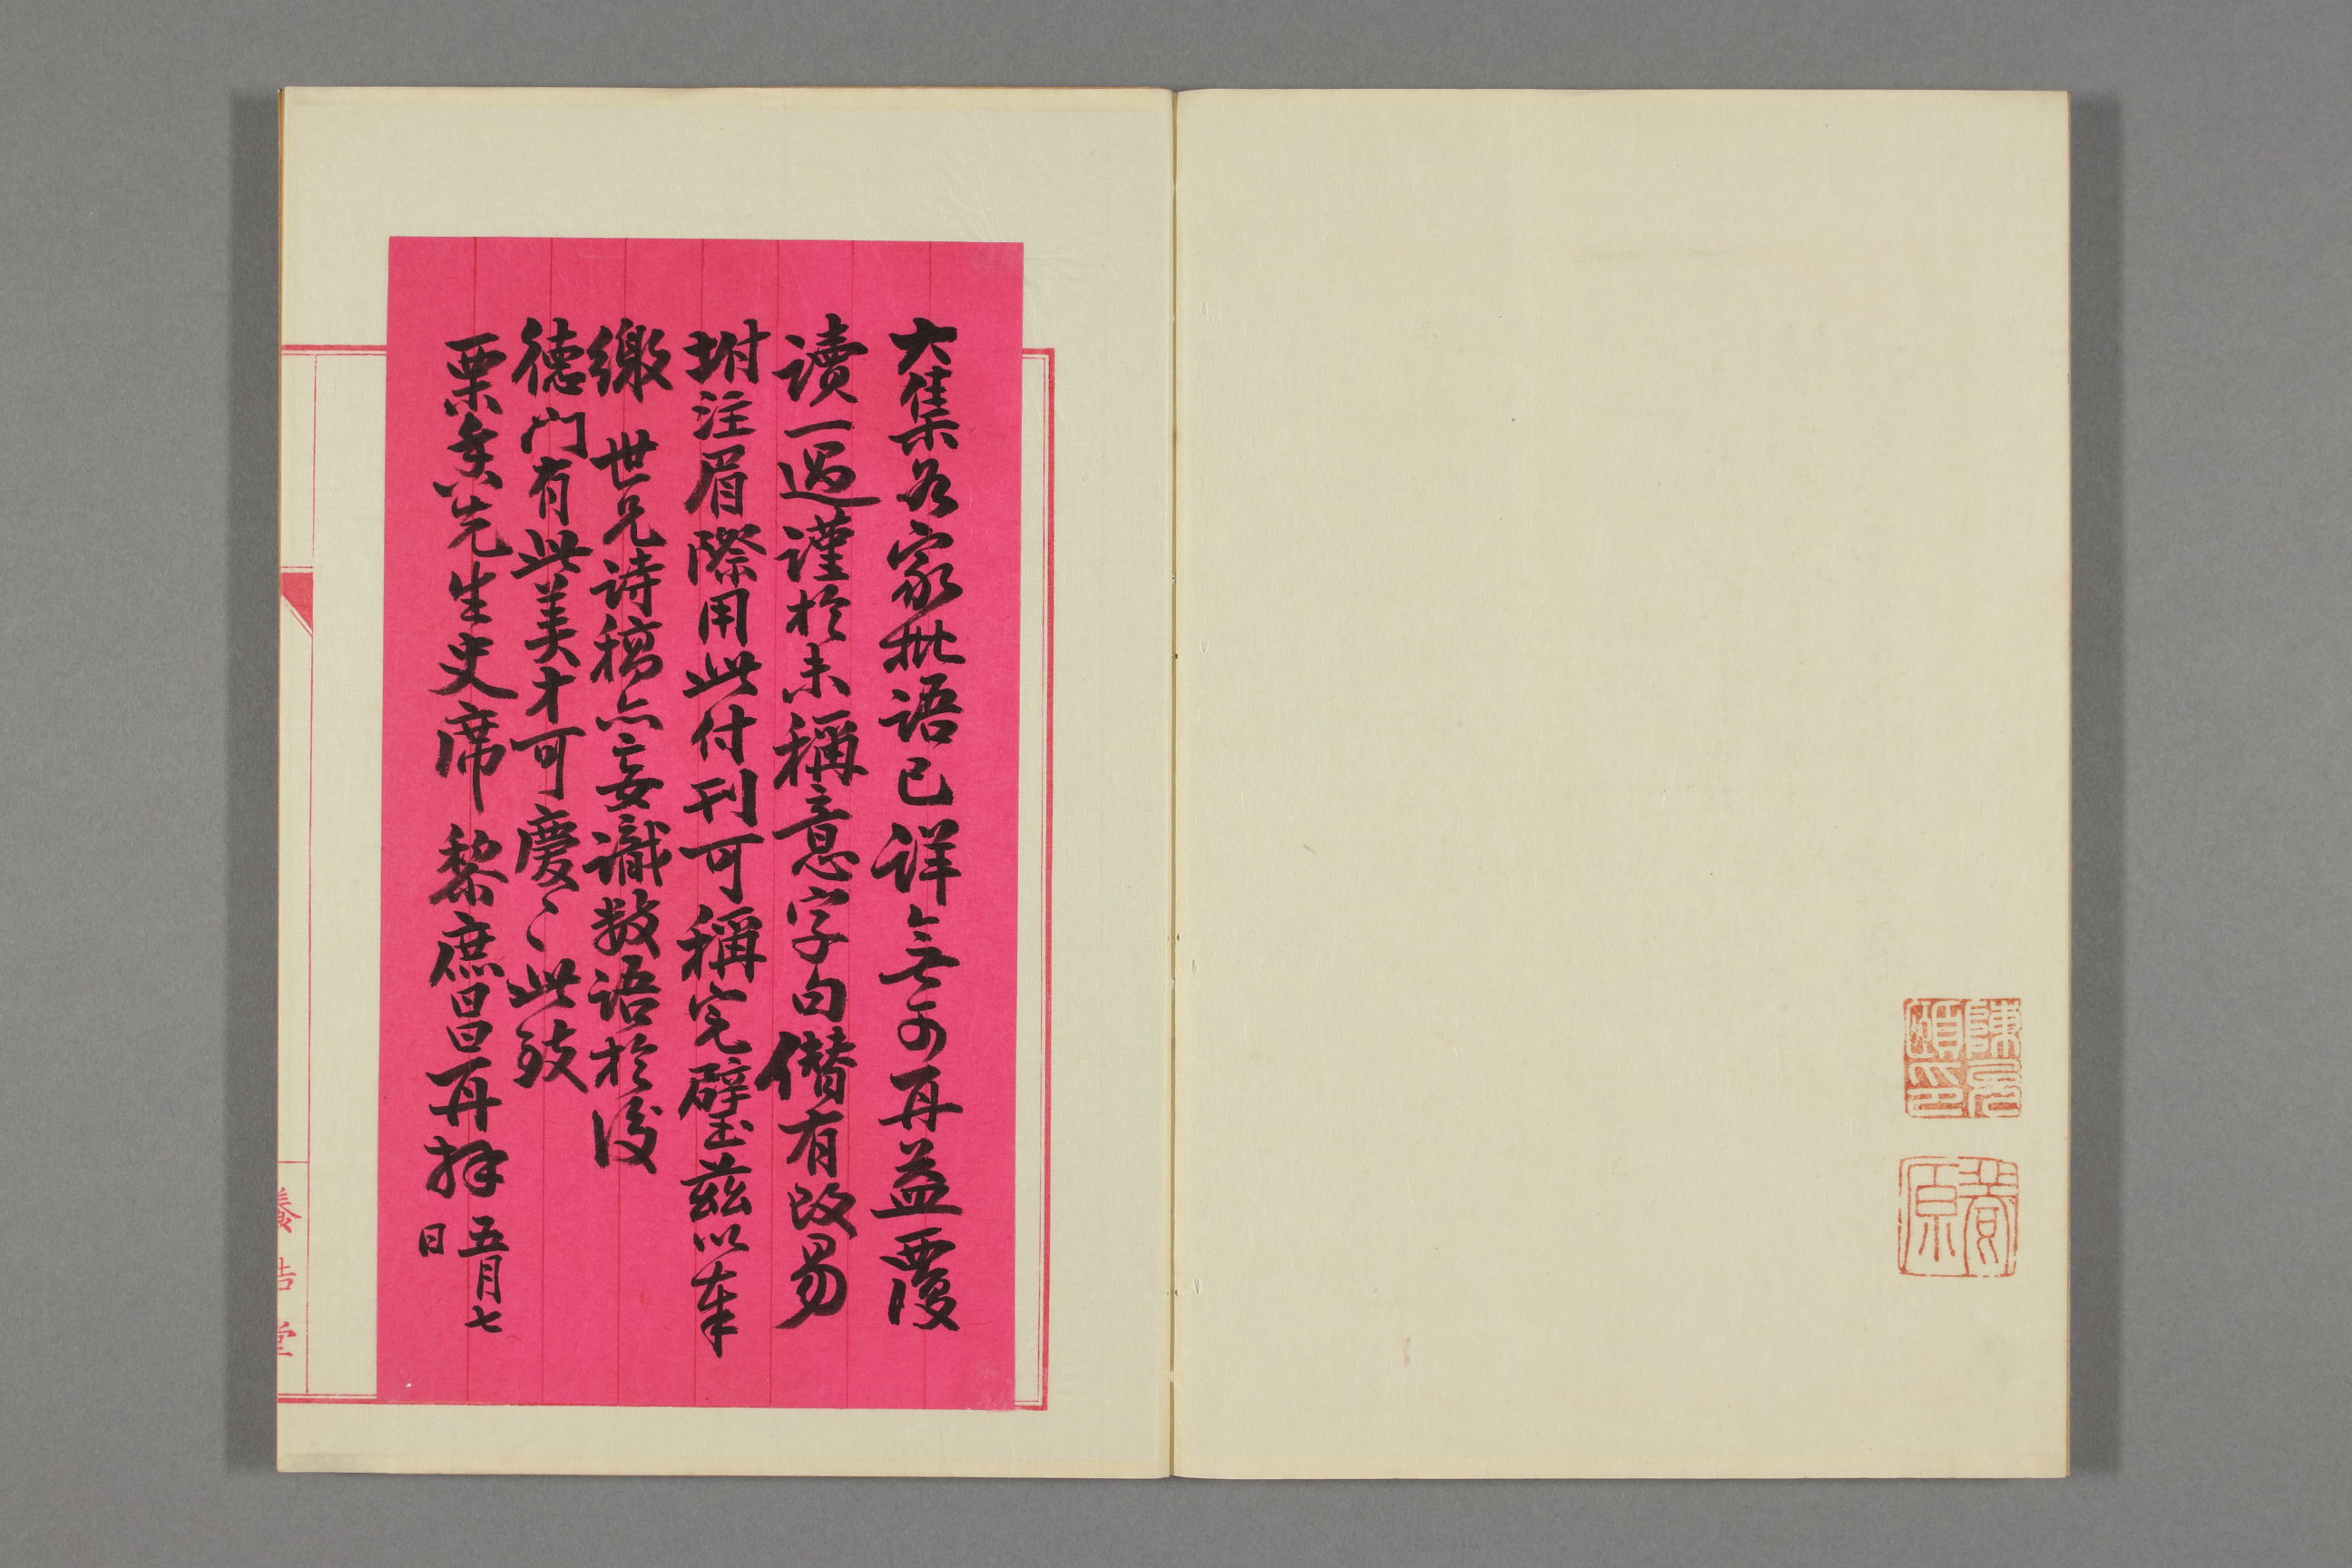 大集各家批語已詳無可再益覆
讀一過謹於未稱意字句僭有改易
坿注眉際用此付刊可稱完璧茲以奉
繳 世兄詩稿亦妄識數語於後
德門有此美才可慶〻此致
栗香先生史席 黎庶昌再拜 五月七
日
養浩堂